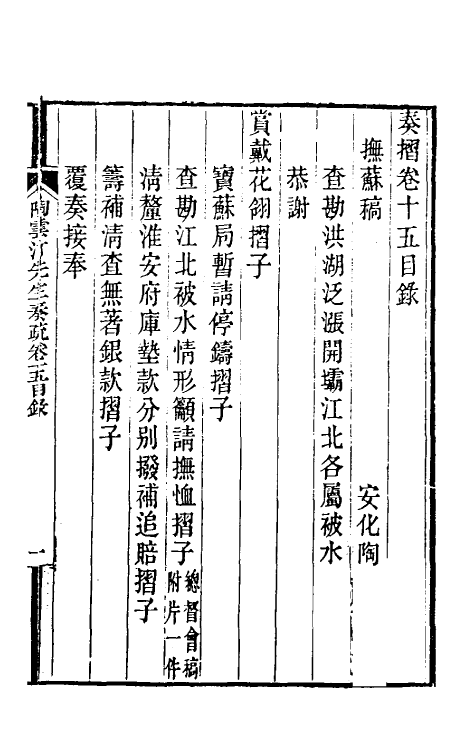 奏摺卷十五目錄
撫蘇稿 安化陶
查勘洪湖泛漲開壩江北各屬被水
恭謝
賞戴花翎摺子
寶蘇局暫請停鑄摺子
查勘江北被水情形籲請撫恤摺子總督會稿附片一件
清釐淮安府庫墊款分別撥補追賠摺子
籌補清查無著銀款摺子
覆奏接奉
陶雲汀先生奏疏 卷十五目錄 一